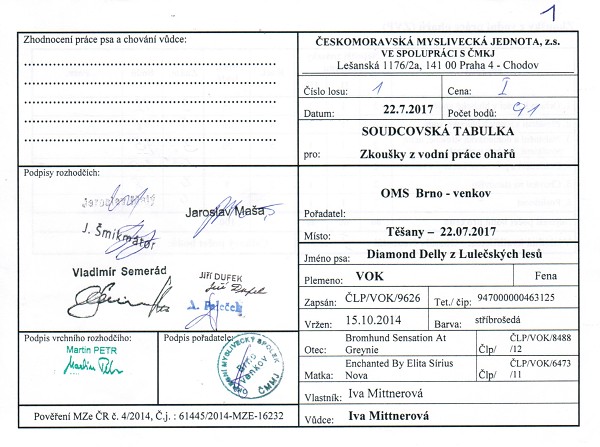 1
Zhodnocení práce psa a chování vůdce:
ČESKOMORAVSKÁ MYSLIVECKÁ JEDNOTA, z.s.
VE SPOLUPRÁCI S ČMKJ
Lešanská 1176/2a, 141 00 Praha 4 - Chodov
Číslo losu: 1 Cena: I
Datum: 22.7.2017 Počet bodů: 91
SOUDCOVSKÁ TABULKA
pro: Zkoušky z vodní práce ohařů
Podpisy rozhodčích:
Jaroslav
Jaroslav Maša
J. Šmikmátor
Vladimír Semerád
JIŘÍ DUFEK
Jiří Dufek
OMS Brno - venkov
Pořadatel:
Místo: Těšany – 22.07.2017
Jméno psa: Diamond Delly z Lulečských lesů
Plemeno: VOK Fena
Zapsán: ČLP/VOK/9626 Tet./ čip: 947000000463125
Vržen: 15.10.2014 Barva: stříbrošedá
Otec: Bromhund Sensation At Greynie Člp/ ČLP/VOK/8488 /12
Matka: Enchanted By Elita Sírius Nova Člp/ ČLP/VOK/6473 /11
Vlastník: Iva Mittnerová
Vůdce: Iva Mittnerová
Podpis vrchního rozhodčího:
Martin PETR
Martin Petr
Podpis pořadatele:
MYSLIVECKÝ SPOLEK
Brno
venkov
ČMMJ
Pověření MZe ČR č. 4/2014, Č.j. : 61445/2014-MZE-16232